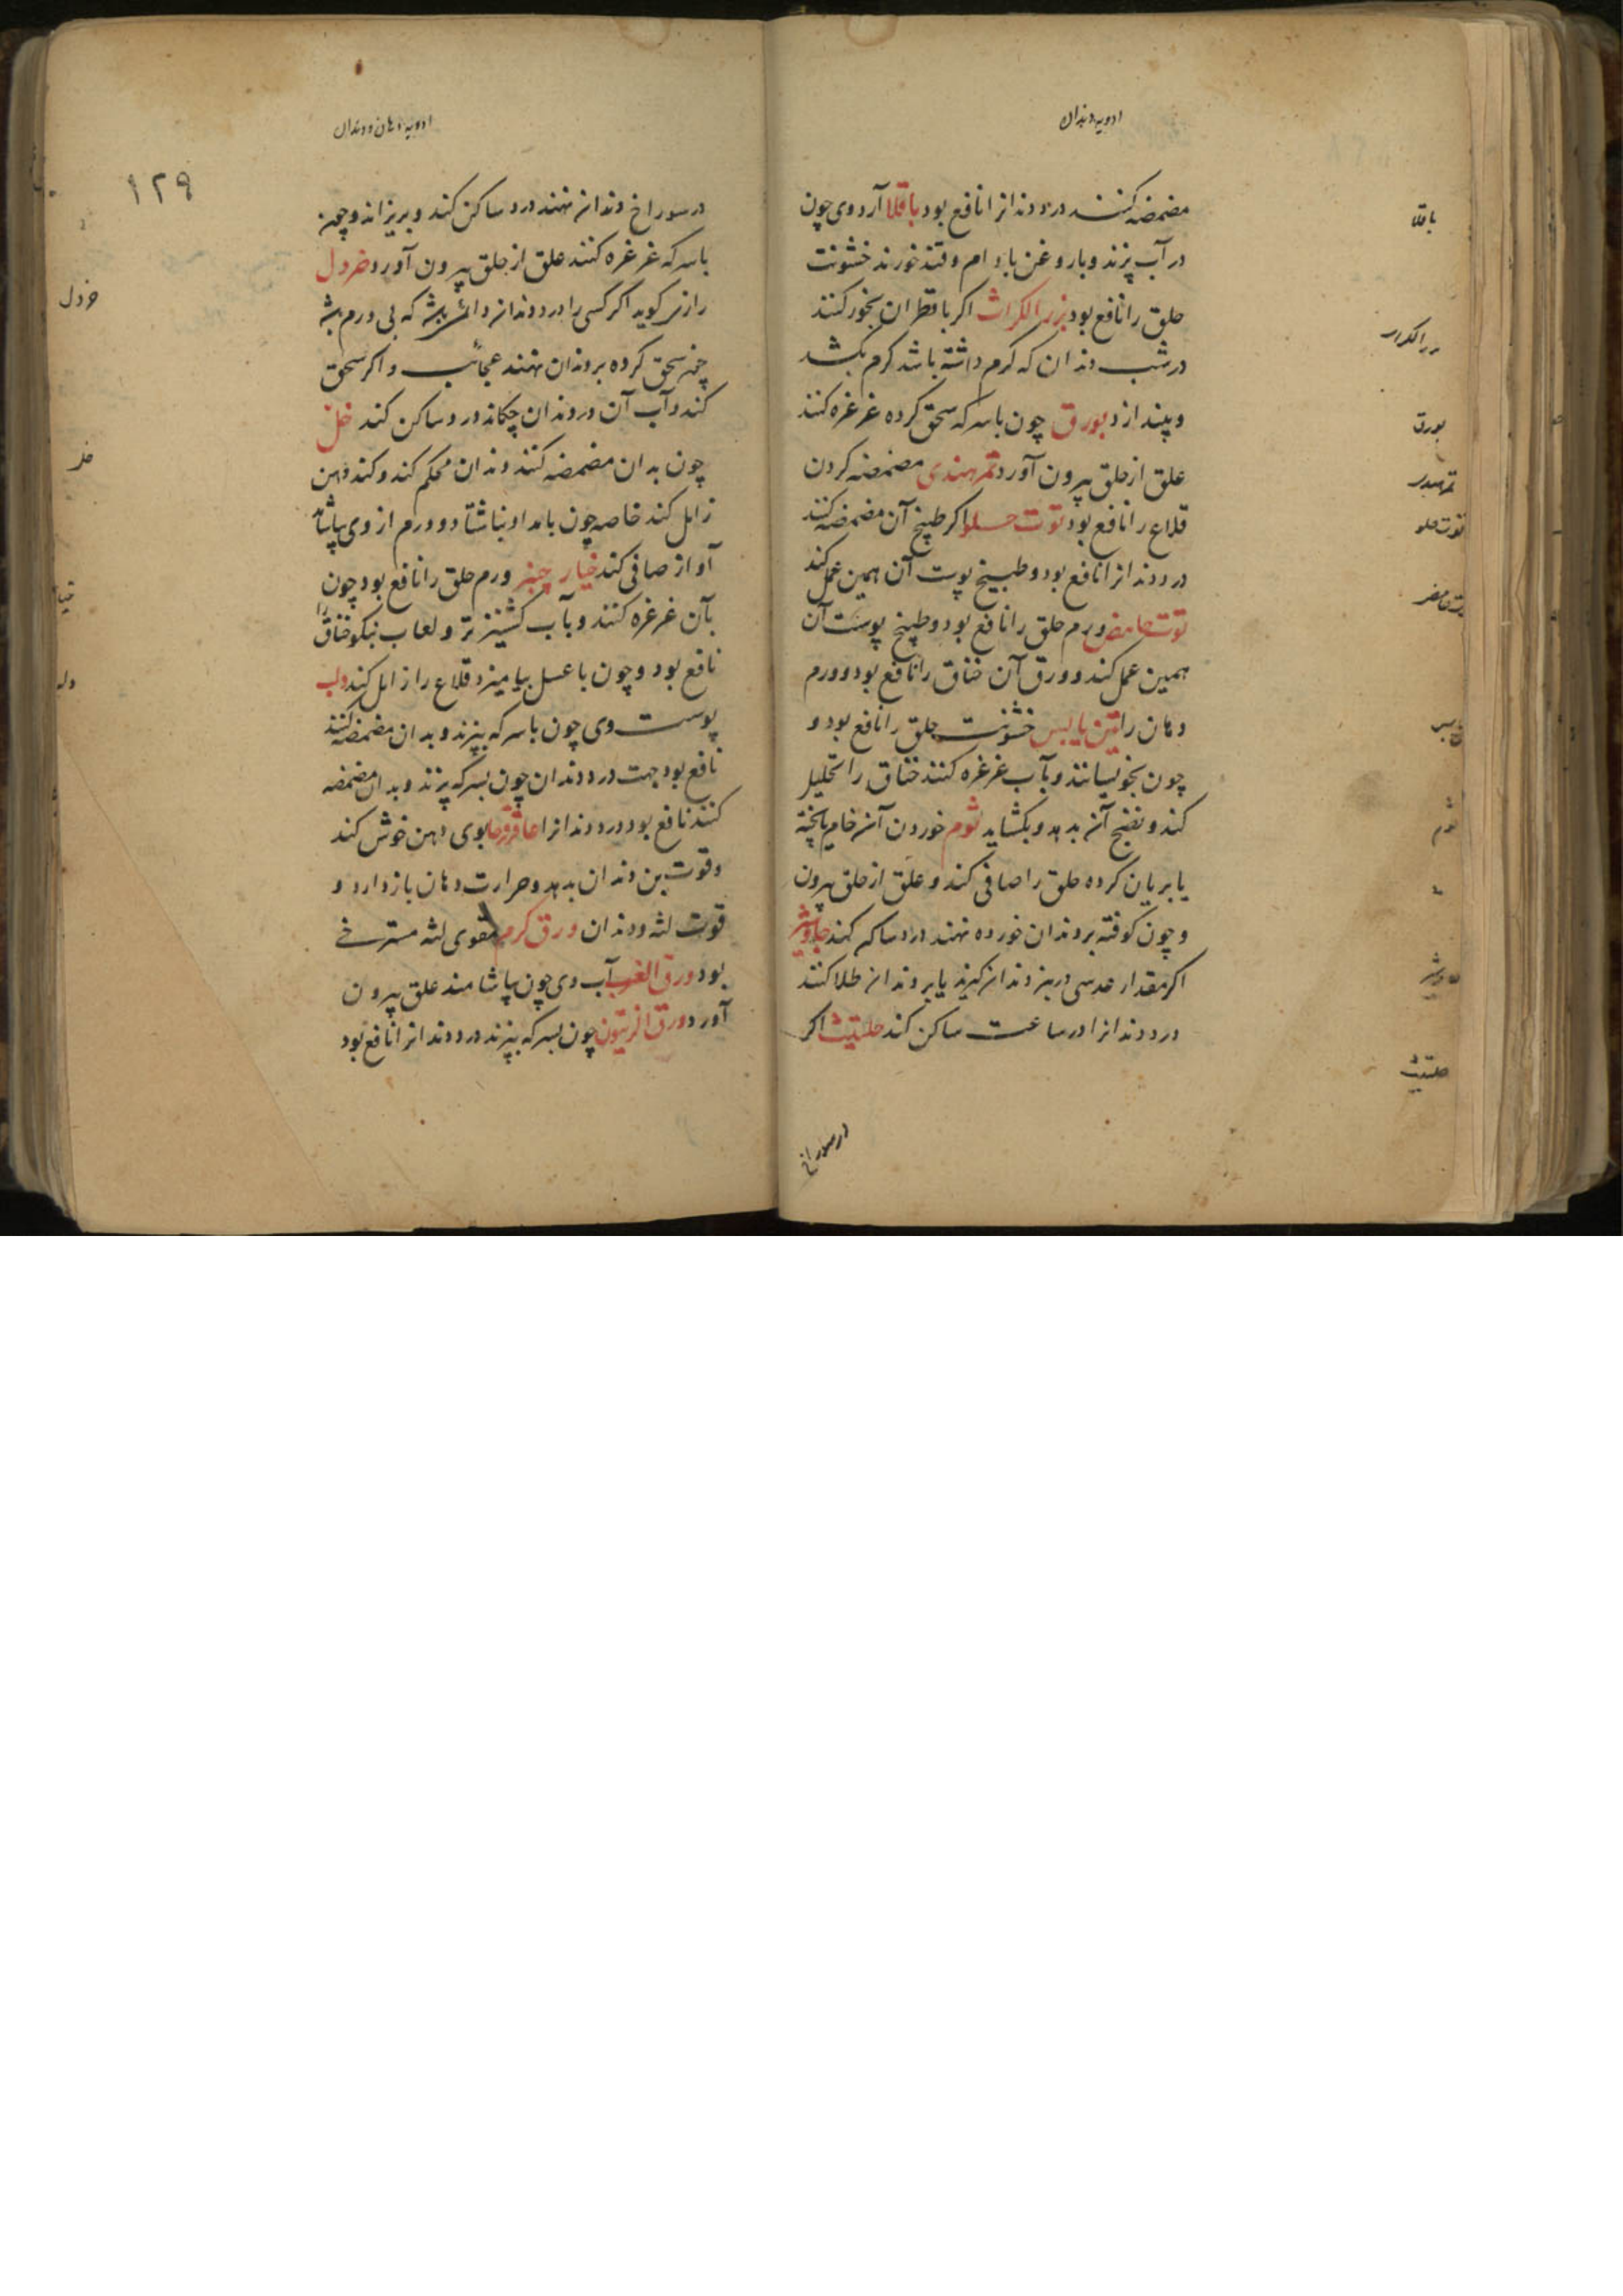 ادویه دندان
مضمضه کنند درد دندانرا نافع بود باقلا آرد وی چون
در آب پزند و با روغن بادام و قند خورند خشونت
حلق را نافع بود بزر الکراث اکر با قطران بخور کنند
در شب دندان که کرم داشته باشد کرم بکشد
و بیندازد بورق چون باسرکه سحق کرده غرغره کنند
علق از حلق بیرون آورد تمر هندی مضمضه کردن
قلاع را نافع بود توت حلو اکر طبیخ آن مضمضه کنند
درد دندانرا نافع بود و طبیخ پوست آن همین عمل کند
توت حامض ورم حلق را نافع بود و طبیخ پوست آن
همین عمل کند و ورق آن خناق را نافع بود و ورم
دهان را تین یابس خشونت حلق را نافع بود و
چون بخویسانند و بآب غرغره کنند خناق را تحلیل
کند و نضج آن بدهد و بکشاید ثوم خوردن آن خام یا پخته
یا بریان کرده حلق را صافی کند و علق از حلق بیرون
و چون کوفته بر دندان خورده نهند درد ساکن کند جاوشیر
اکر مقدار عدسی در بن دندان کیرند یا بر دندان طلا کنند
درد دندانرا در ساعت ساکن کند حلتیث اکر
در سوراخ
باقلا
بزر الکراث
بورق
تمر هندی
توت حلو
توت حامض
تین یابس
ثوم
جاوشیر
حلتیث
ادویه دهان و دندان
۱۲۹
در سوراخ دندان نهند درد ساکن کند و بریزاند و چون
باسرکه غرغره کنند علق از حلق بیرون آورد خردل
رازی کوید اکر کسی را درد دندان دائم باشد که بی ورم باشد
چون سحق کرده بر دندان نهند عجائب و اکر سحق
کند و آب آن در دندان چکاند درد ساکن کند خل
چون بدان مضمضه کنند دندان محکم کند و کند دهن
زایل کند خاصه چون بامداد بناشتا و ورم از وی بیاشامد
آواز صافی کند خیار چنبر ورم حلق را نافع بود چون
بآن غرغره کنند و بآب کشنیز تر و لعاب نیکو خناق را
نافع بود و چون با عسل بیامیزد قلاع را زایل کند دلب
پوست وی چون باسرکه بپزند و بدان مضمضه کنند
نافع بود جهت درد دندان چون بسرکه پزند و بدان مضمضه
کنند نافع بود درد دندانرا عاقرقرحا بوی دهن خوش کند
و قوت بن دندان بدهد و حرارت دهان باز دارد و
قوت لثه و دندان ورق کرم مقوی لثه مسترخی
بود ورق الغرب آب وی چون بیاشامند علق بیرون
آورد ورق الزیتون چون بسرکه بپزند درد دندانرا نافع بود
خردل
خل
خیار
دلب